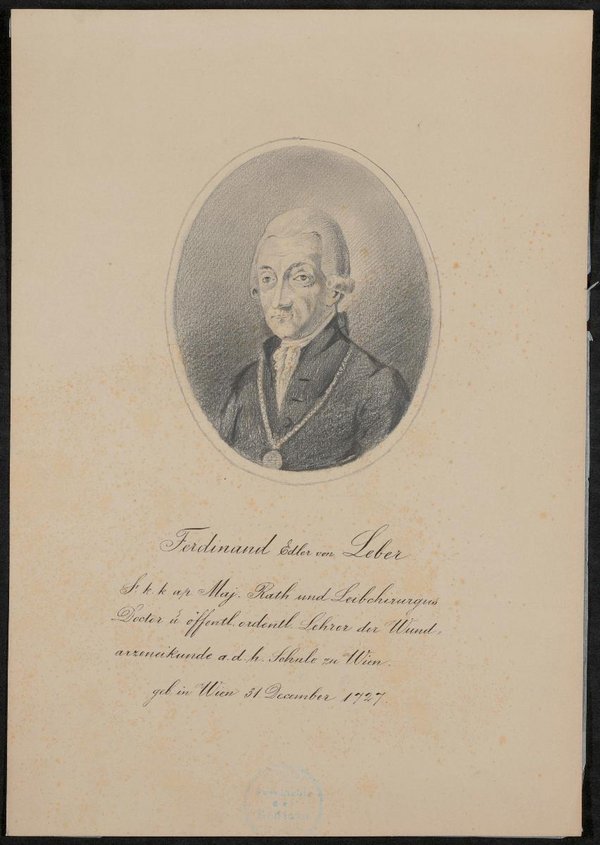 Ferdinand Edler von Leber
S. k. k. ap. Maj. Rath und Leibchirurgus
Doctor u. öffentl. ordentl. Lehrer der Wund-
arzeneikunde a. d. h. Schule zu Wien.
geb in Wien 31 December 1727